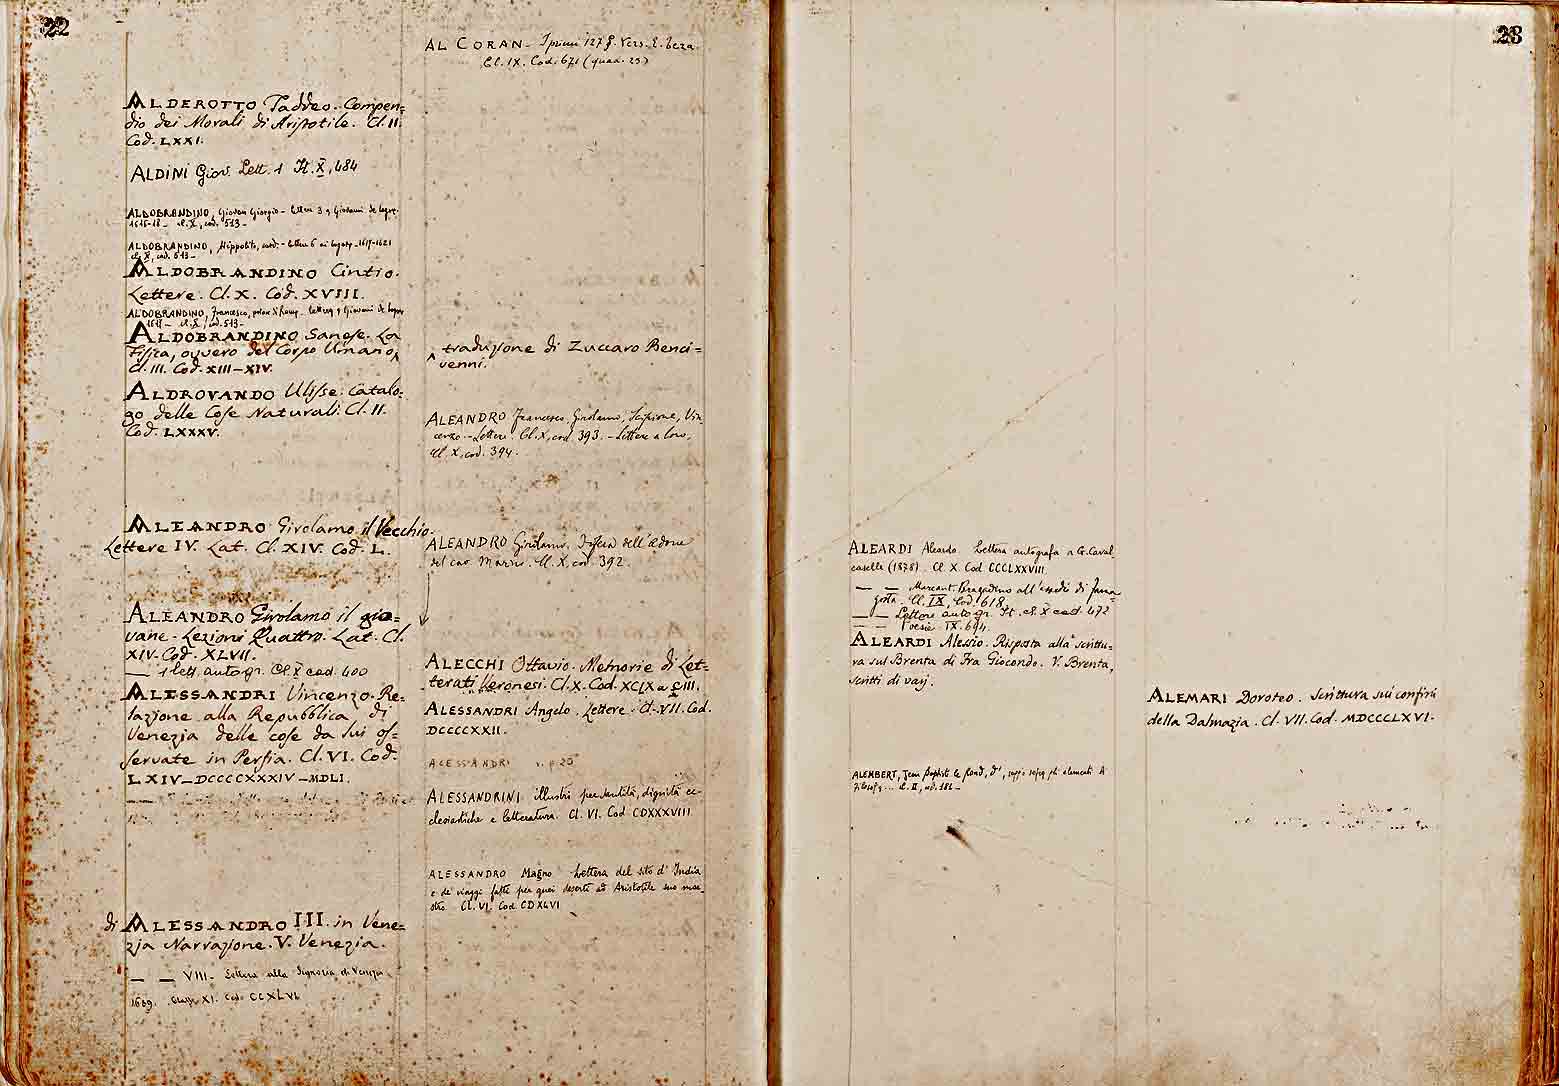 22
ALDEROTTO Taddeo. Compen=
dio dei Morali di Aristotile. Cl. II.
Cod. LXXI.
ALDINI Giov. Lett. 1 It. X, 484
ALDOBRANDINO, Giovan Giorgio - lettere 3 a Giovanni de
1615-18 - cl. X, cod. 513 -
ALDOBRANDINO, Hippolito, card. - lettere 6 - 1617-1621
cl. X, cod. 513 -
ALDOBRANDINO Cintio.
Lettere. Cl. X. Cod. XVIII.
ALDOBRANDINO, Francesco, Giovanni de
cl. X, cod. 513 -
ALDOBRANDINO Sanese. La
Fisica, ovvero del Corpo Umano,
Cl. III. Cod. XIII-XIV.
ALDROVANDO Ulisse. Catalo-
go delle Cose Naturali. Cl. II.
Cod. LXXXV.
ALEANDRO Girolamo il Vecchio.
Lettere IV. Lat. Cl. XIV. Cod. L.
ALEANDRO Girolamo il gio=
vane. Lezioni Quattro. Lat. Cl.
XIV. Cod. XLVII.
— 1 lett. autogr. Cl. X cod. 400
ALESSANDRI Vincenzo. Re=
lazione alla Repubblica di
Venezia delle cose da lui os=
servate in Persia. Cl. VI. Cod.
LXIV_DCCCCXXXIV_MDLI.
di ALESSANDRO III. in Vene=
zia Narrazione. V. Venezia.
— — VIII - Lettera alla Signoria di Venezia
1689. Classe XI. Cod. CCXLVI
AL CORAN - I primi 127 Vers. E.
Cl. IX. Cod. 671 (quad. 25)
traduzione di Zuccaro Benci=
venni.
ALEANDRO Francesco, Girolamo, Scipione, Vin-
cenzo - Lettere. Cl. X, cod. 393. - Lettere a loro,
Cl. X, cod. 394.
ALEANDRO Girolamo. Difesa dell'Adone
del cav. Marino. Cl. X, cod. 392.
ALECCHI Ottavio. Memorie di Let=
terati Veronesi. Cl. X. Cod. XCIX a CIII.
ALESSANDRI Angelo. Lettere. Cl. VII. Cod.
DCCCCXXII.
ALESSANDRI v. p. 25
ALESSANDRINI illustri per santità, dignità ec-
clesiastiche e letteratura. Cl. VI. Cod CDXXXVIII
ALESSANDRO Magno Lettera del sito d'India
e de' viaggi fatti per quei deserti ad Aristotile suo mae-
stro. Cl. VI. Cod CDXCVI
23
ALEARDI Aleardo. Lettera autografa a G. Caval
caselle (1878). Cl. X. Cod CCCLXXVIII.
— — Marcant. Bragadino all'assedio di Fama-
gosta. Cl. IX, Cod. 618.
— — Lettere autogr. It. cl. X cod. 472
— — Poesie. IX. 694
ALEARDI Alessio. Risposta alla scrittu-
ra sul Brenta di Fra Giocondo. V. Brenta,
scritti di varj.
ALEMBERT, Jean Baptiste le Rond, d', saggio sugli elementi di
filosofia... cl. II, cod. 182 -
ALEMARI Doroteo. Scrittura sui confini
della Dalmazia. Cl. VII. Cod. MDCCCLXVI.